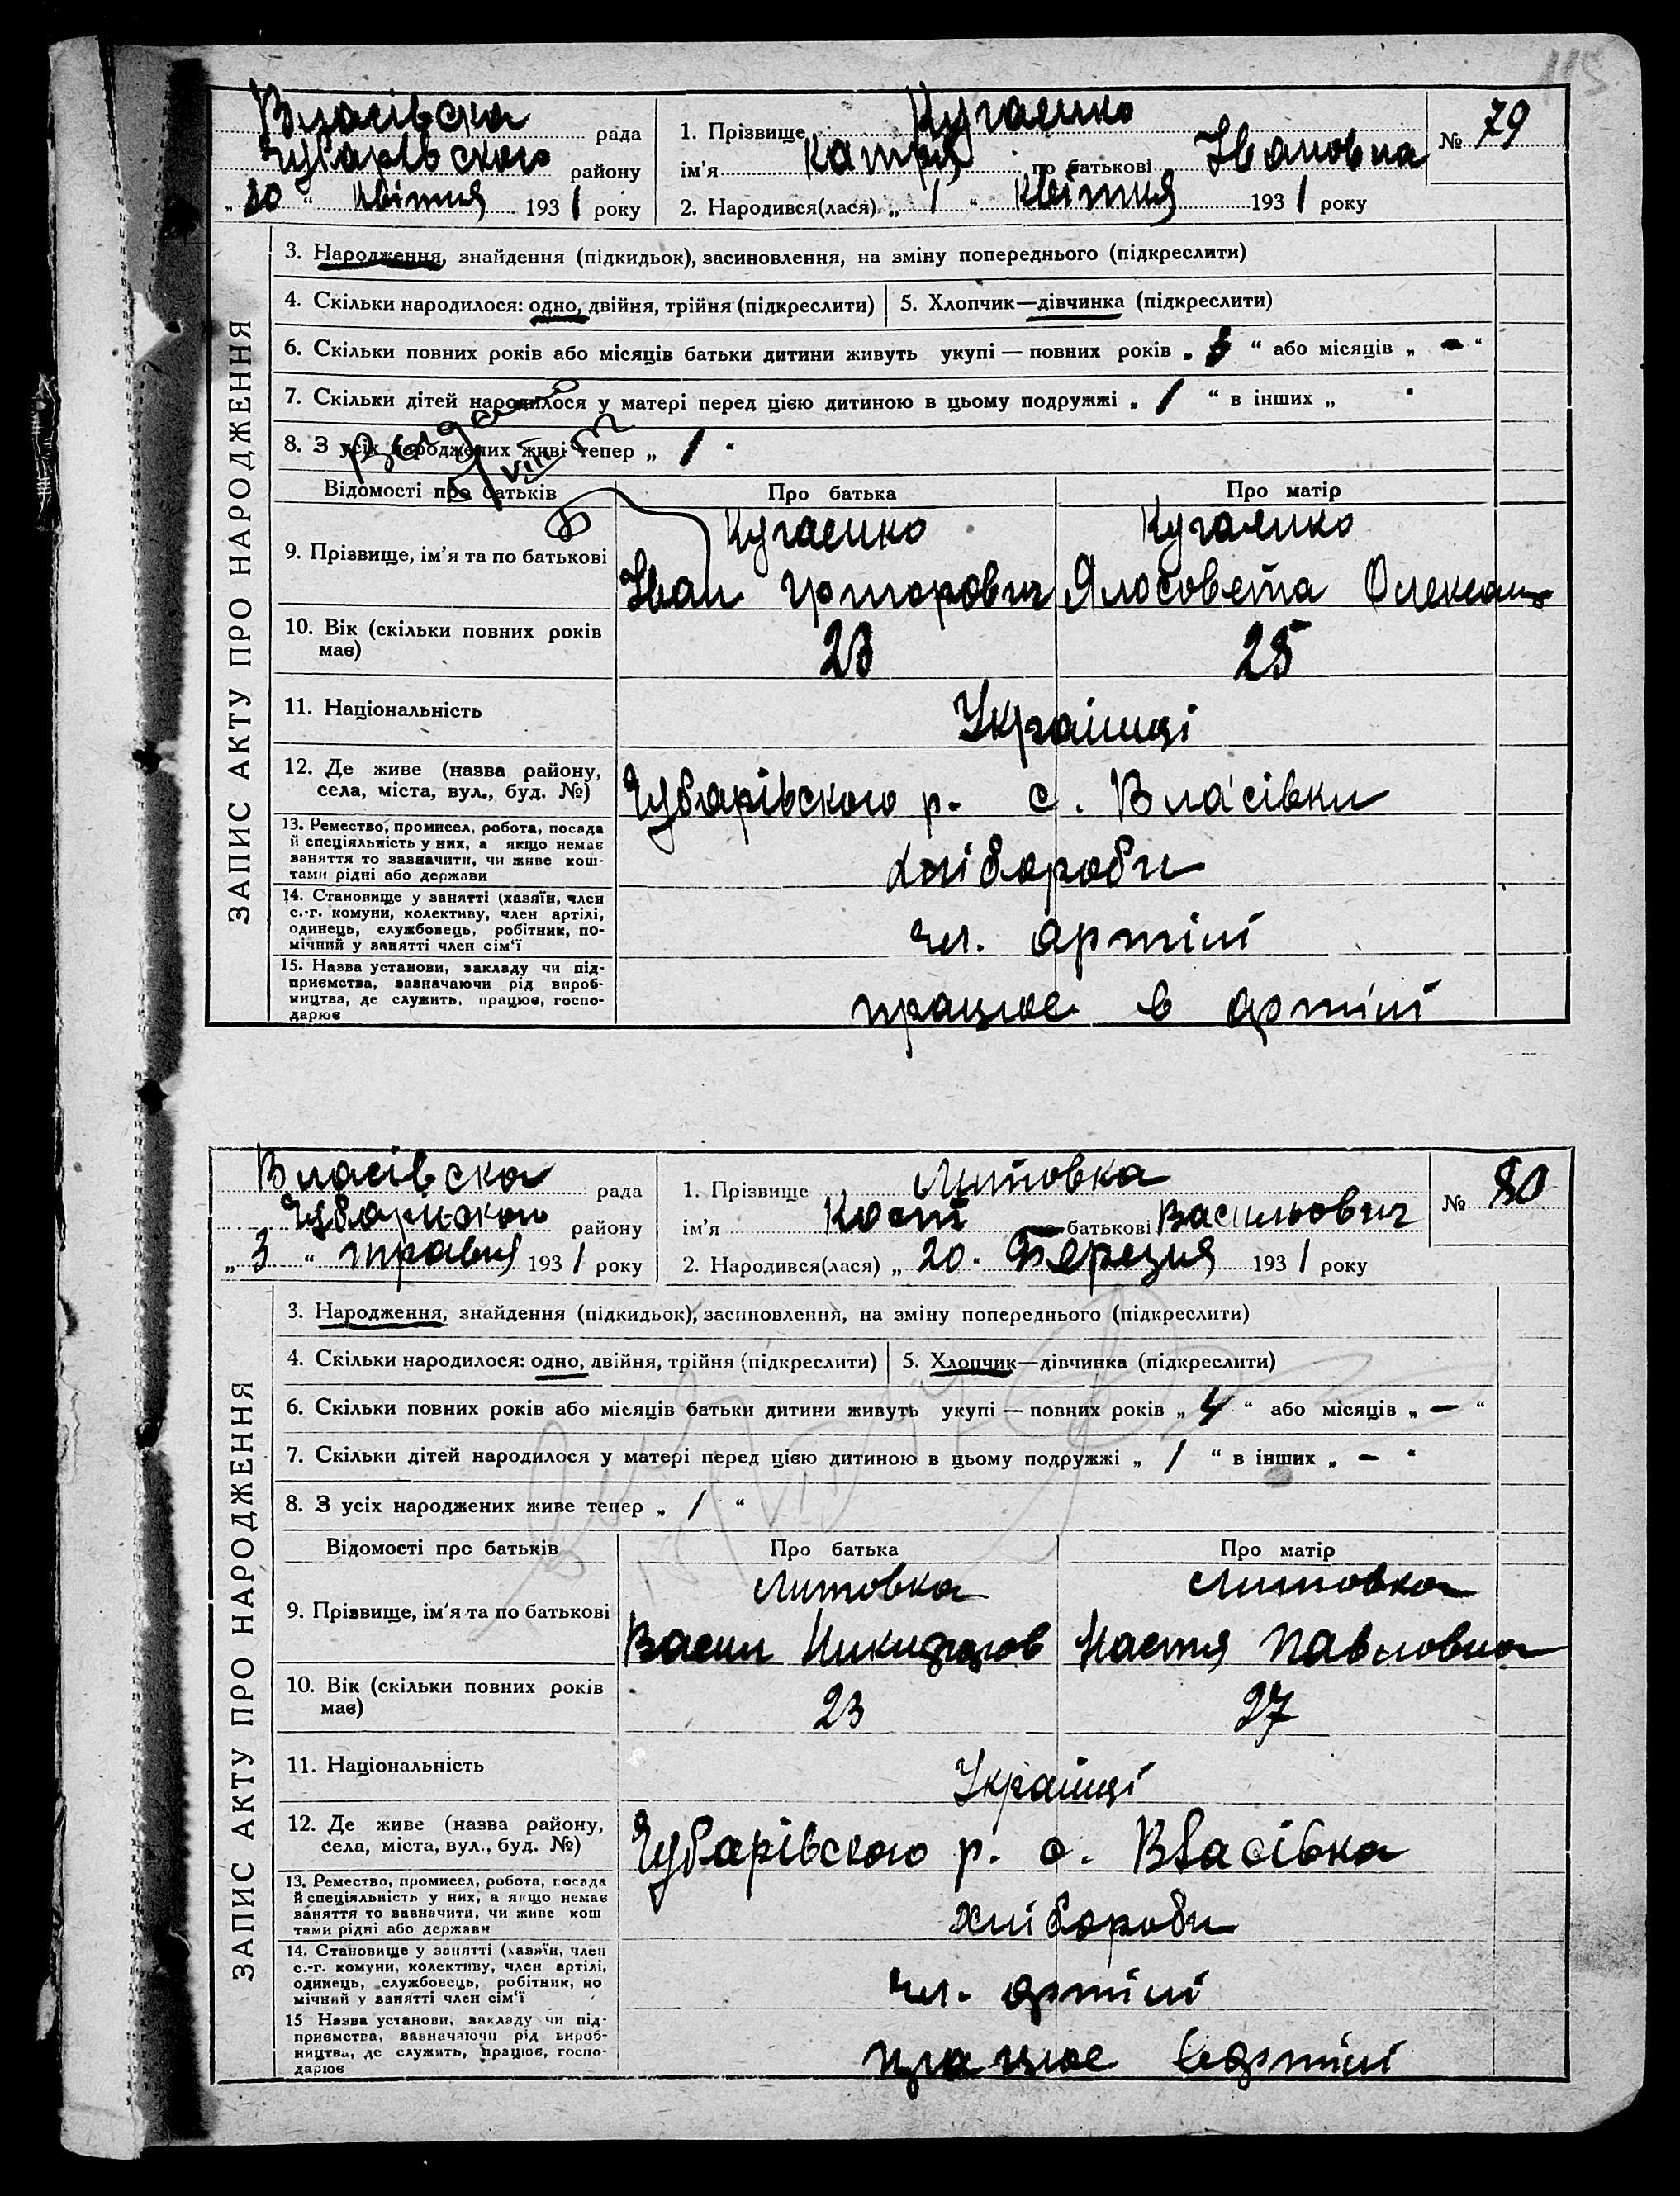 115
Власівска рада
Чубарівского району
„30“ Квітня 1931 року
1. Прізвище Кугаенко
ім’я Катря по батькові Івановна
2. Народився(лася) „1“ Квітня 1931 року
№ 79
ЗАПИС АКТУ ПРО НАРОДЖЕННЯ
3. Народження, знайдення (підкидьок), засиновлення, на зміну попереднього (підкреслити)
4. Скільки народилося: одно, двійня, трійня (підкреслити)
5. Хлопчик—дівчинка (підкреслити)
6. Скільки повних років або місяців батьки дитини живуть укупі — повних років „ “ або місяців „ - “
7. Скільки дітей народилося у матері перед цією дитиною в цьому подружжі „ 1 “ в інших „ “
8. З усіх народжених живі тепер „ 1 “
Відомості про батьків
Про батька
Про матір
9. Прізвище, ім’я та по батькові
Кугаенко
Іван
Кугаенко
Ялосовета Олексан
10. Вік (скільки повних років
має)
23
25
11. Національність
Українці
12. Де живе (назва району,
села, міста, вул., буд. №)
Чубарівского р. с. Власівки
13. Ремество, промисел, робота, посада
й спеціяльність у них, а якщо немає
заняття то зазначити, чи живе кош-
тами рідні або держави
хлібороби
14. Становище у занятті (хазяїн, член
с.-г. комуни, колективу, член артілі,
одинець, службовець, робітник, по-
мічний у занятті член сім’ї
чл. артілі
15. Назва установи, закладу чи під-
приємства, зазначаючи рід вироб-
ництва, де служить, працює, госпо-
дарює
працює в артілі
Власівска рада
району
„3“ травня 1931 року
1. Прізвище Литовка
ім’я Кості батькові Васильович
2. Народився(лася) „20. Березня 1931 року
№ 80
ЗАПИС АКТУ ПРО НАРОДЖЕННЯ
3. Народження, знайдення (підкидьок), засиновлення, на зміну попереднього (підкреслити)
4. Скільки народилося: одно, двійня, трійня (підкреслити)
5. Хлопчик—дівчинка (підкреслити)
6. Скільки повних років або місяців батьки дитини живуть укупі — повних років „ 4 “ або місяців „ — “
7. Скільки дітей народилося у матері перед цією дитиною в цьому подружжі „ 1 “ в інших „ — “
8. З усіх народжених живе тепер „ 1 “
Відомості про батьків
Про батька
Про матір
9. Прізвище, ім’я та по батькові
Литовка
Васил
Литовка
Настя Павловна
10. Вік (скільки повних років
має)
23
27
11. Національність
Українці
12. Де живе (назва району,
села, міста, вул., буд. №)
Чубарівского р. с. Власівка
13. Ремество, промисел, робота, посада
й спеціяльність у них, а якщо немає
заняття то зазначити, чи живе кош
тами рідні або держави
хлібороби
14. Становище у занятті (хазяїн, член
с.-г. комуни, колективу, член артілі,
одинець, службовець, робітник, по
мічний у занятті член сім’ї
чл. артілі
15 Назва установи, закладу чи під-
приємства, зазначаючи рід вироб-
ництва, де служить, працює, госпо-
дарює
працює в артілі